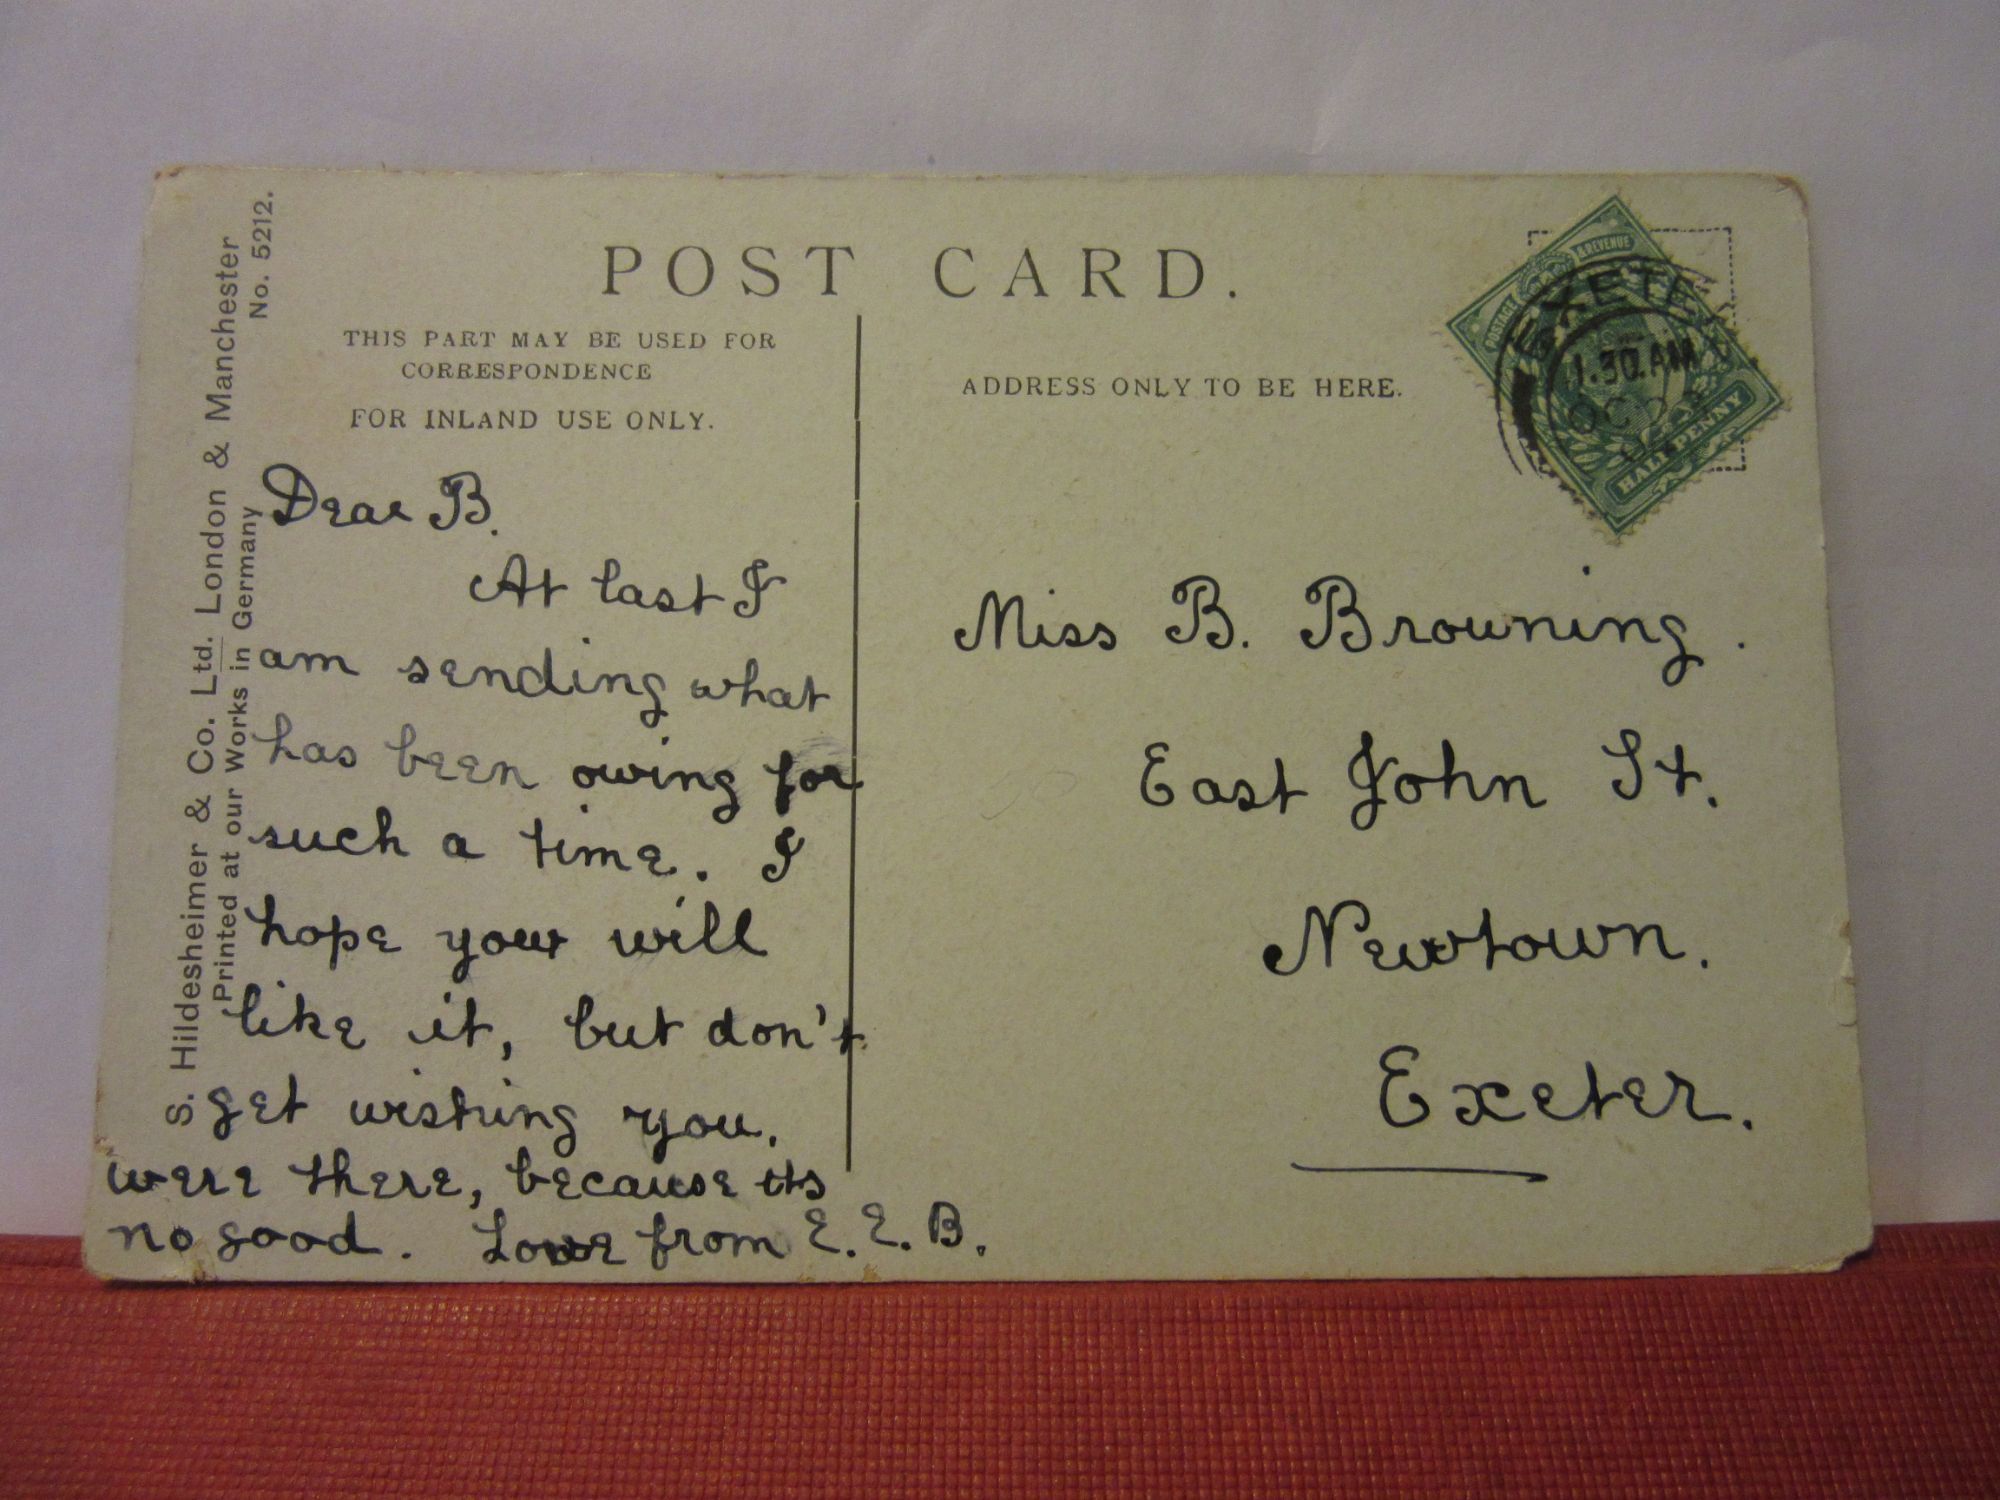 POST CARD.
THIS PART MAY BE USED FOR
CORRESPONDENCE
FOR INLAND USE ONLY.
ADDRESS ONLY TO BE HERE.
S. Hildesheimer & Co. Ltd. London & Manchester
Printed at our Works in Germany
No. 5212.
POSTAGE & REVENUE
HALFPENNY
EXETER
1.30.AM
OC
Dear B.
At last I
am sending what
has been owing for
such a time. I
hope you will
like it, but don't
get wishing you,
were there, because its
no good. Love from E. E. B.
Miss B. Browning.
East John St.
Newtown.
Exeter.